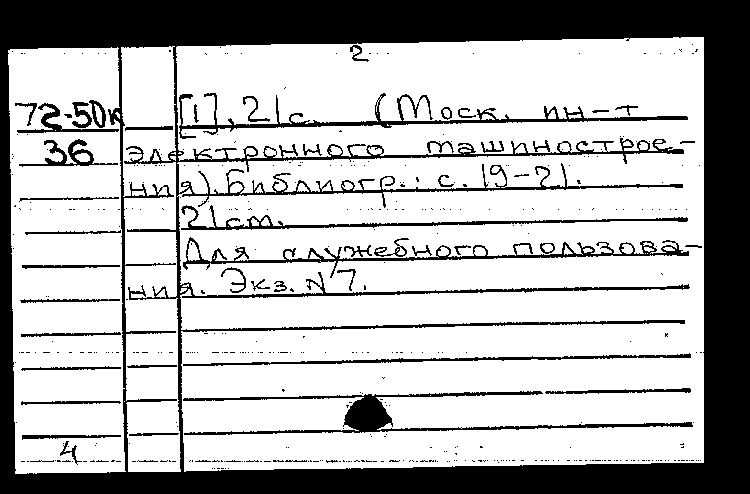 2
72-50к [1], 21с. (Моск. ин-т
36 электронного машинострое-
ния). Библиогр.: с. 19-21.
21см.
Для служебного пользова-
ния. Экз. N7.
4